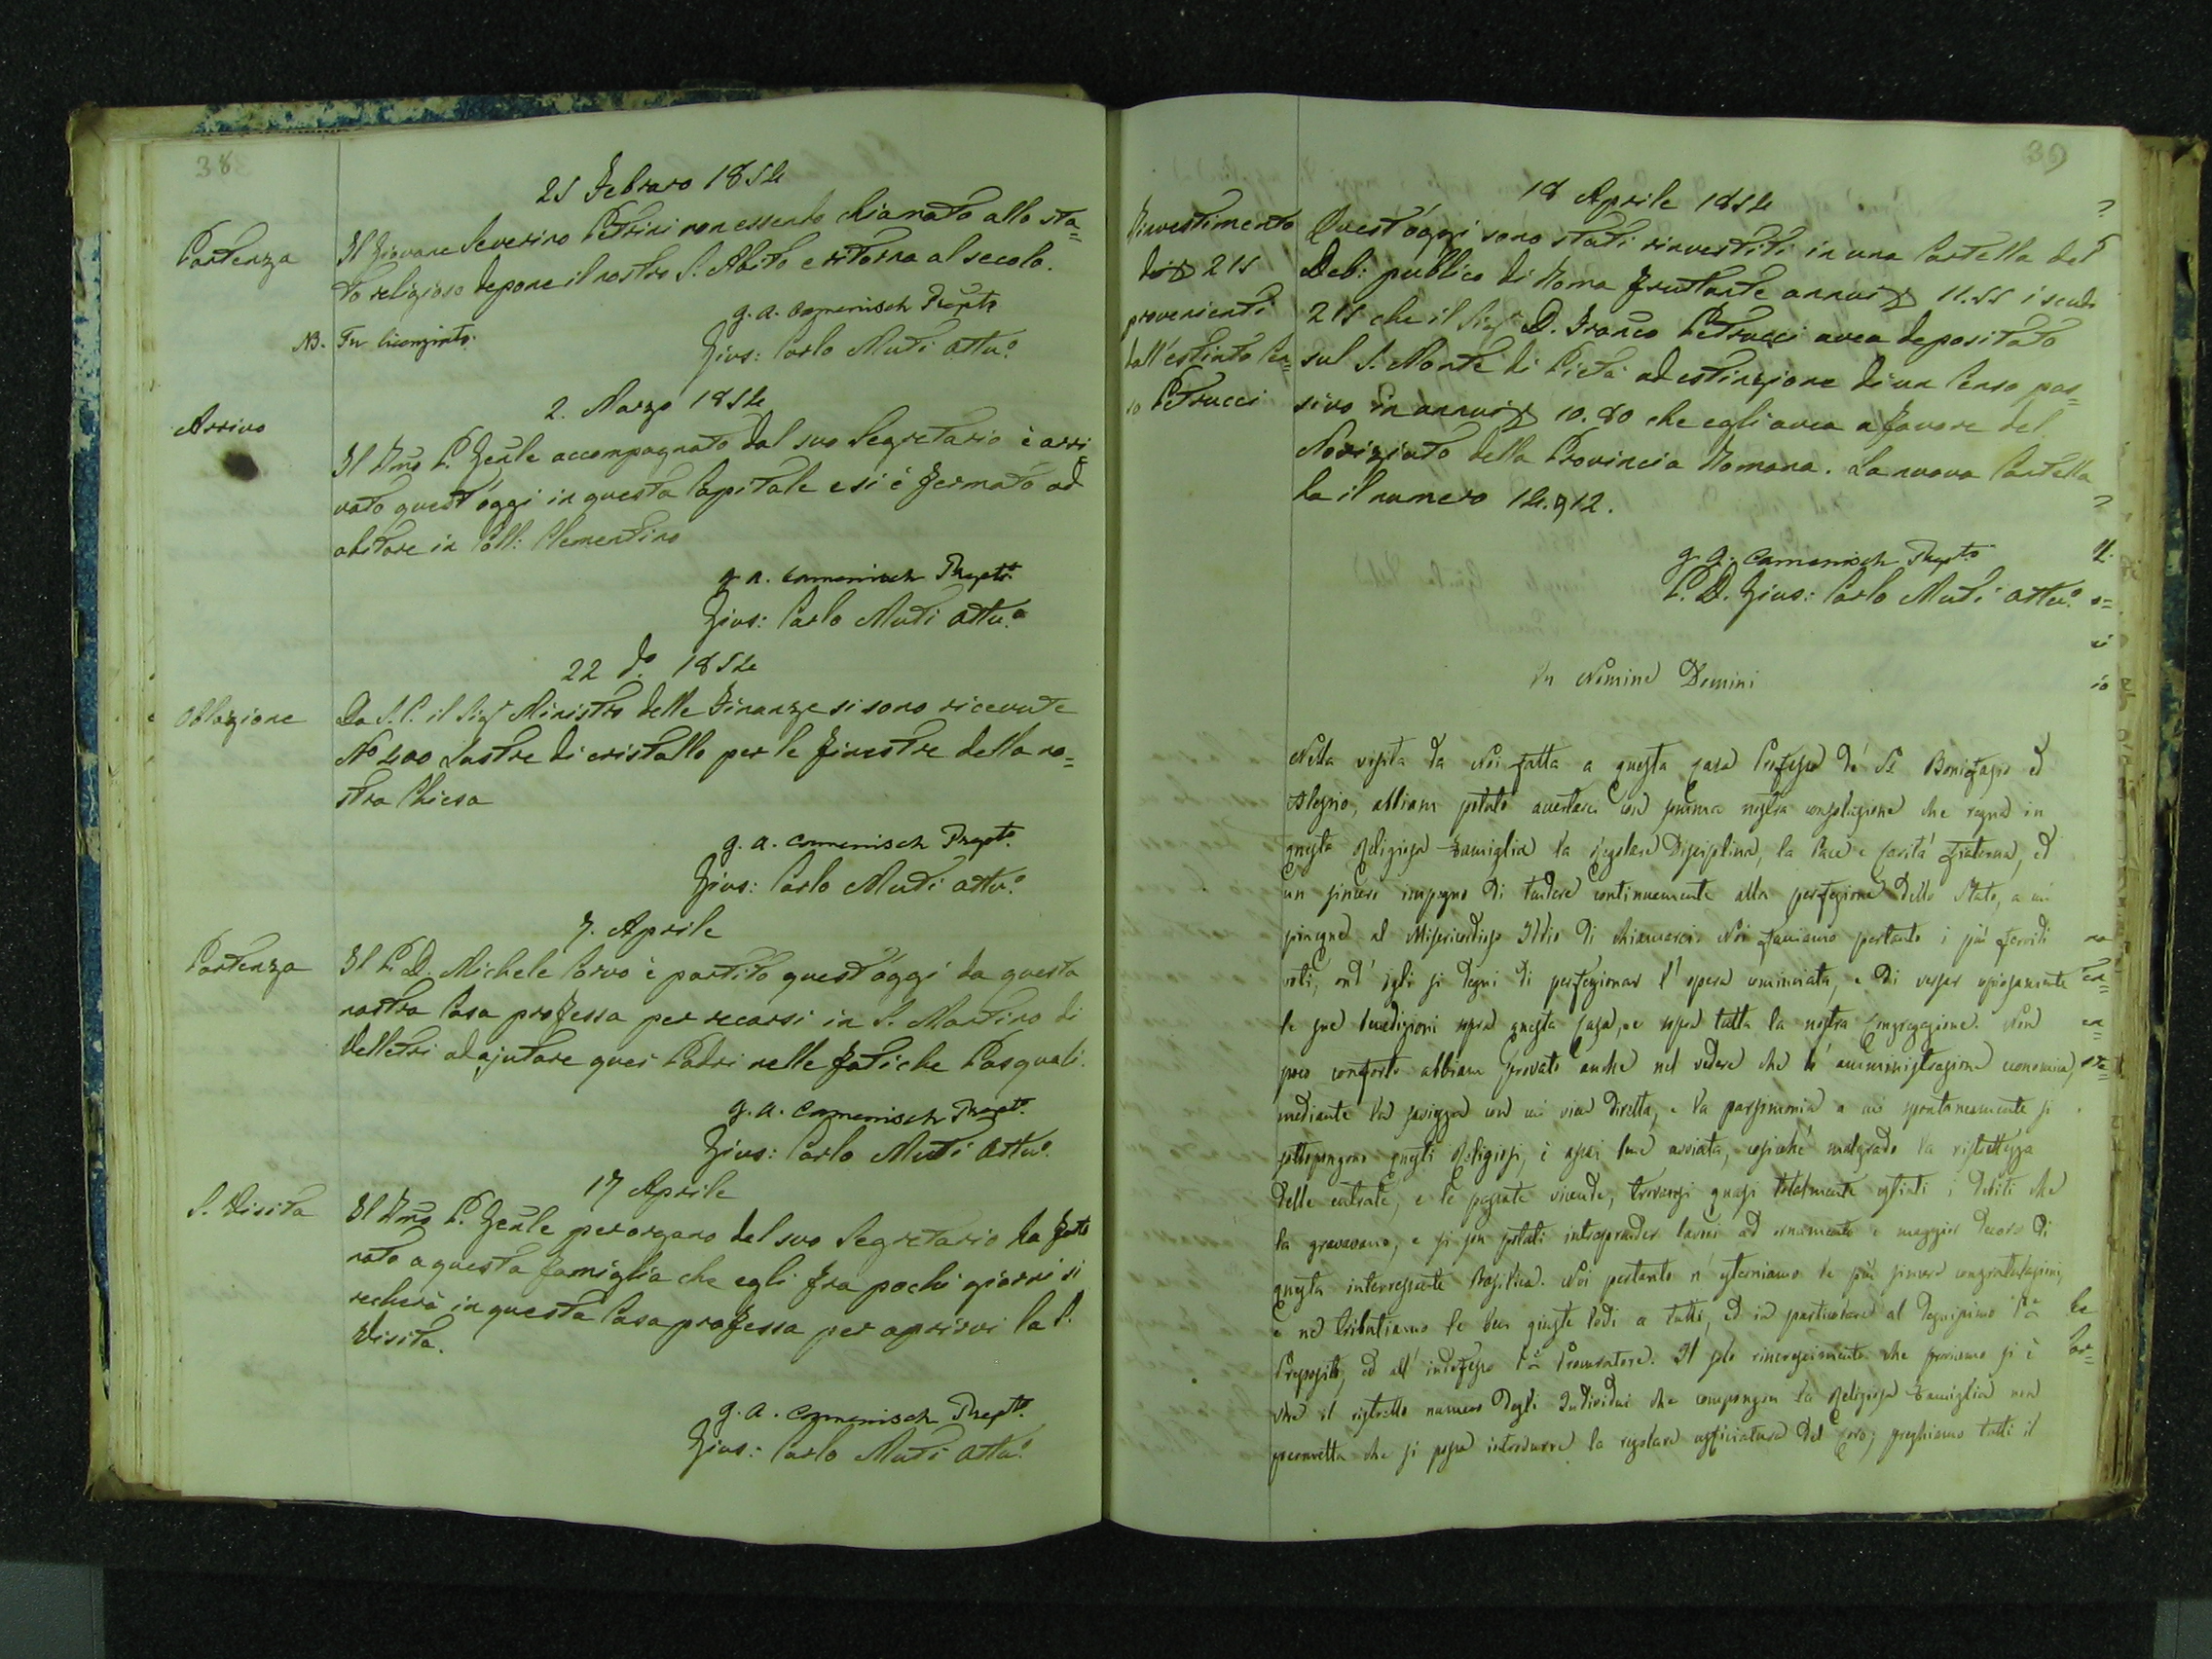 38
25 Febraro 1854
Partenza
Il Giovane Severino Petrini non essendo chiamato allo sta=
to religioso depone il nostro S. Abito e ritorna al secolo.
g. a. Camenisch Prepto
NB. Fu licenziato.
Gius: Carlo Muti Attuo
2. Marzo 1854
Arrivo
Il Rmo P. Genle accompagnato dal suo Segretario è arri=
vato quest'oggi in questa Capitale e si è fermato ad
abitare in Coll: Clementino
g. a. Camenisch Prepto
Gius: Carlo Muti Attuo
22 do 1854
Oblazione
Da S. E. il Sigr Ministro delle Finanze si sono ricevute
No 400 Lastre di cristallo per le finestre della no=
stra Chiesa
g. a. Camenisch Prepto
Gius: Carlo Muti Attuo
7. Aprile
Partenza
Il P. D. Michele Corvo è partito quest'oggi da questa
nostra Casa professa per recarsi in S. Martino di
Velletri ad ajutare quei Padri nelle fatiche Pasquali.
g. a. Camenisch Prepto
Gius: Carlo Muti Attuo
17 Aprile
S. Visita
Il Rmo P. Genle per organo del suo Segretario ha
a questa famiglia che egli fra pochi giorni si
recherà in questa Casa professa per aprirvi la S.
Visita.
g. a. Camenisch Prepto
Gius: Carlo Muti Attuo
39
18 Aprile 1854
Rinvestimento
di 215
provenienti
dall'estinto Cen=
so Petrucci
Quest'oggi sono stati rinvestiti in una Cartella del
Deb: pubblico di Roma fruttante annui 11.55 i scudi
215 che il Sigr D. Franco Petrucci avea depositato
sul S. Monte di Pietà ad estinzione di un Censo pas=
sivo in annui 10.80 che egli avea a favore del
Noviziato della Provincia Romana. La nuova Cartella
ha il numero 14.912.
g. a. Camenisch Prepto
P. D. Gius: Carlo Muti Attuo
In Nomine Domini
Nella visita da Noi fatta a questa Casa Professa de' SS. Bonifazio ed
Alessio, abbiam potuto accertarci con somma nostra consolazione che regna in
questa Religiosa Famiglia la regolare Disciplina, la Pace e Carità fraterna, ed
un sincero impegno di tendere continuamente alla perfezione dello Stato, a cui
piacque al Misericordioso Iddio di chiamarci. Noi facciamo pertanto i più fervidi
voti, ond' Egli si degni di perfezionar l'opera cominciata, e di versar copiosamente
le sue benedizioni sopra questa Casa, e sopra tutta la nostra Congregazione. Non
poco conforto abbiam provato anche nel vedere che l'amministrazione economica,
mediante la saviezza con cui vien diretta, e la parsimonia a cui spontaneamente si
sottopongono questi Religiosi, è assai ben avviata, cosicchè malgrado la ristrettezza
delle entrate, e le passate vicende, trovansi quasi totalmente estinti i debiti che
la gravavano, e si son potuti intraprender lavori ad ornamento e maggior decoro di
questa interessante Basilica. Noi pertanto n'esterniamo le più sincere congratulazioni,
e ne tributiamo le ben giuste lodi a tutti, ed in particolare al degnissimo Pre
Preposito, ed all'indefesso Pre Procuratore. Il solo rincrescimento che proviamo si è
che il ristretto numero degli Individui che compongon la Religiosa Famiglia non
permetta che si possa introdurre la regolare ufficiatura del Coro; preghiamo tutti il